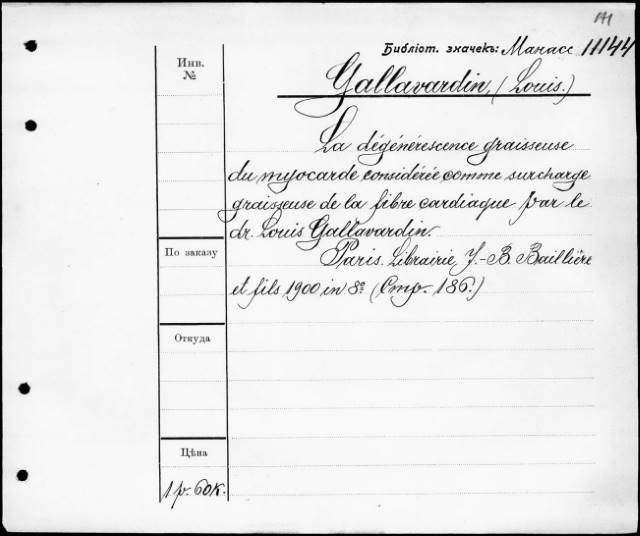 Ɐ1
Библіот. значекъ: Манасс 11144
Инв.
№
Gallavardin, (Louis.)
La dégénérescence graisseuse
du myocarde considérée comme surcharge
graisseuse de la fibre cardiaque par le
dr. Louis Gallavardin.
По заказу
Paris. Librairie J.-B. Baillière
et fils 1900 in 8º (Стр. 186.)
Откуда
Цѣна
1 р. 60 к.